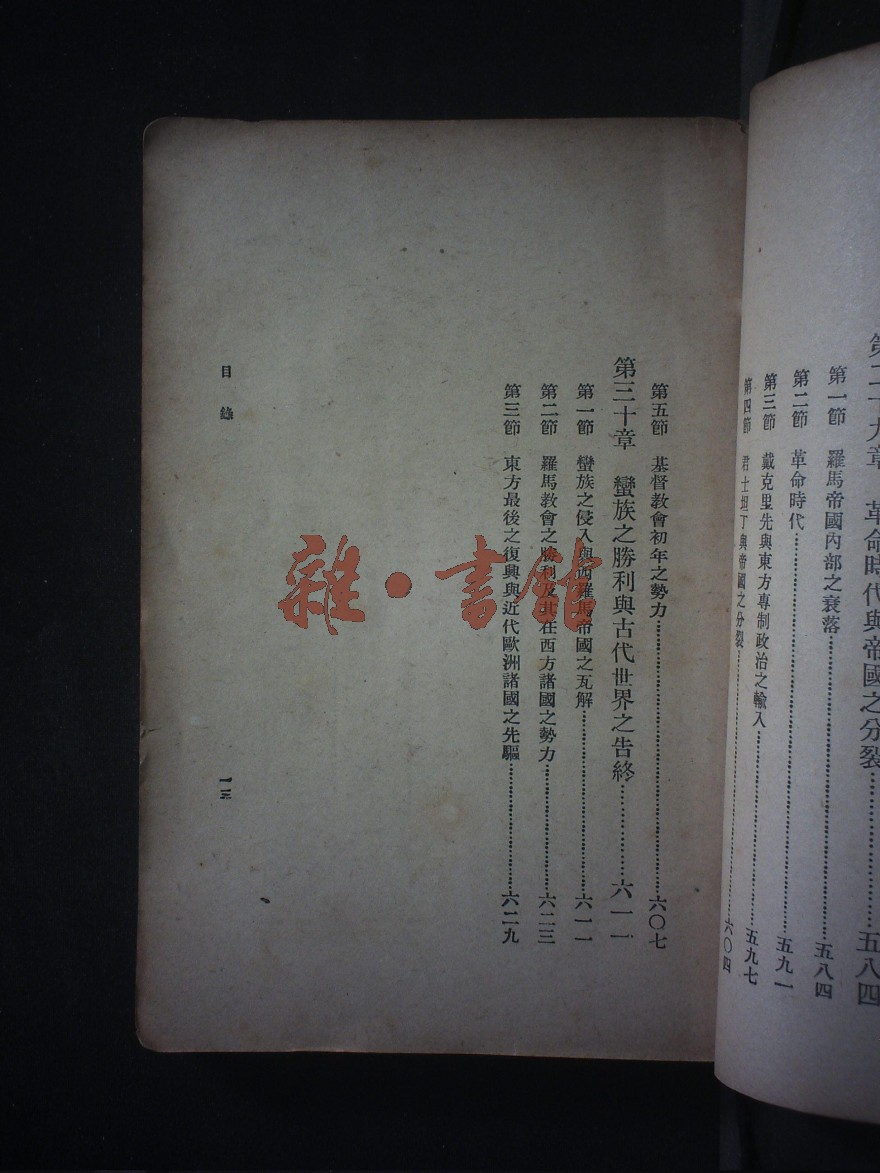 第二十九章　革命時代與帝國之分裂……………五八四
第一節　羅馬帝國內部之衰落……………五八四
第二節　革命時代……………五九一
第三節　戴克里先與東方專制政治之輸入……………五九七
第四節　君士坦丁與帝國之分裂……………六〇四
第五節　基督教會初年之勢力……………六〇七
第三十章　蠻族之勝利與古代世界之告終……………六一一
第一節　蠻族之侵入與西羅馬帝國之瓦解……………六一一
第二節　羅馬教會之勝利及其在西方諸國之勢力……………六二三
第三節　東方最後之復興與近代歐洲諸國之先驅……………六二九
目錄
一三
雜·書館